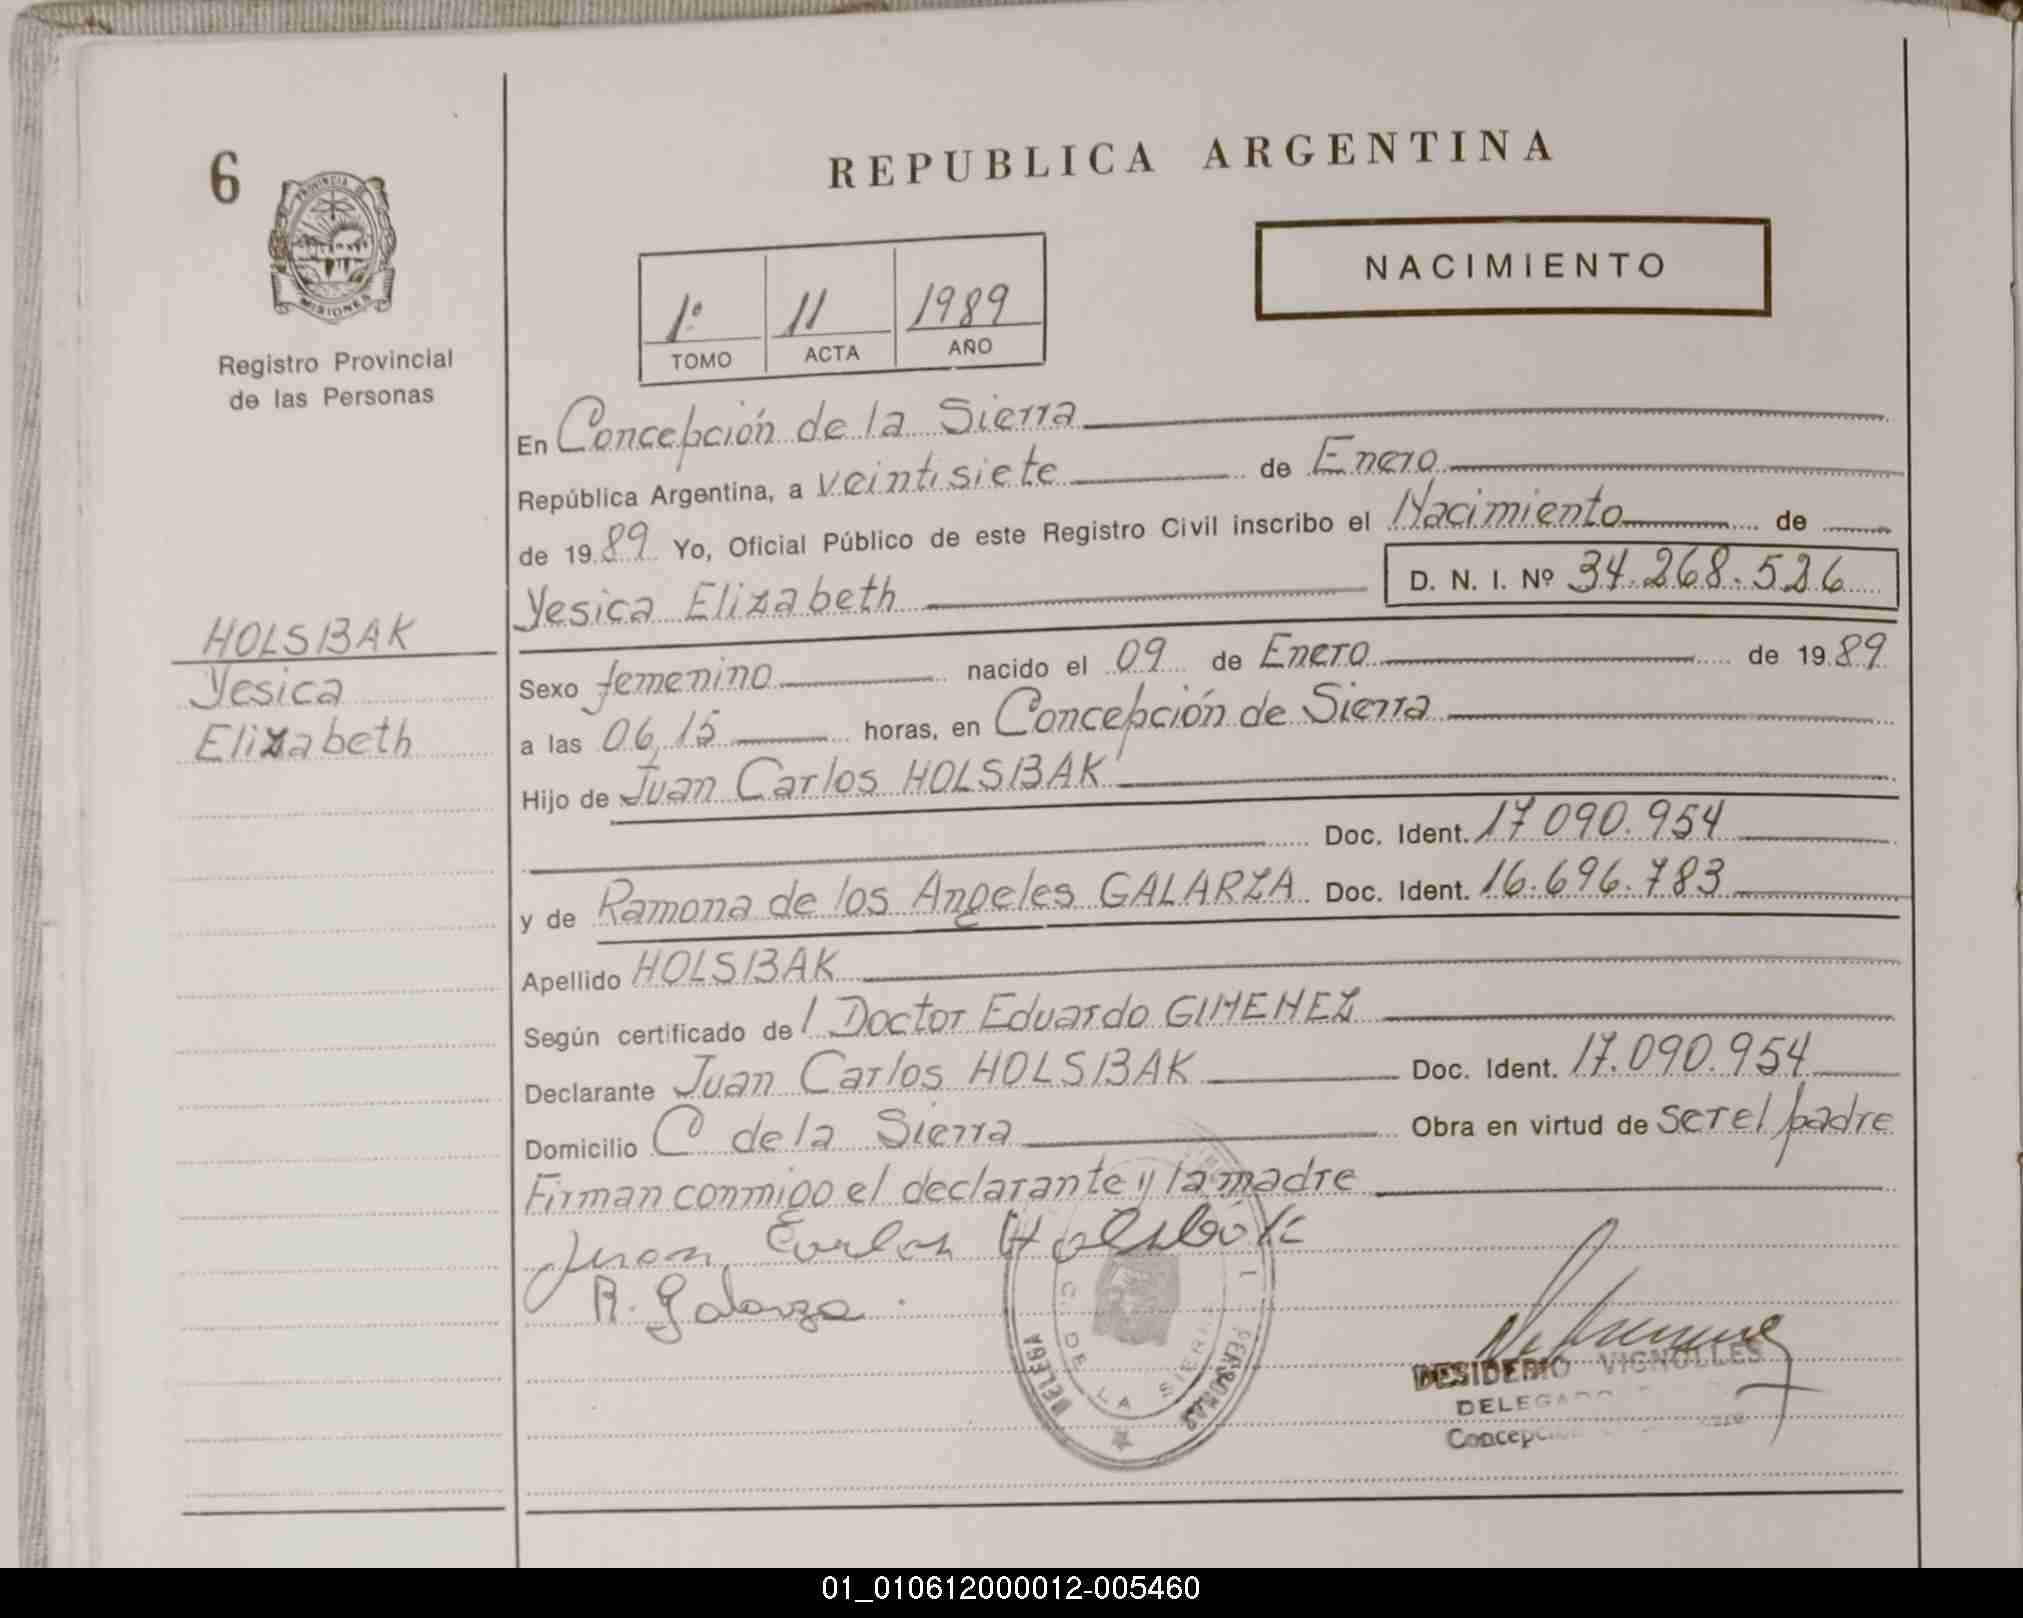 6
PROVINCIA DE
MISIONES
Registro Provincial
de las Personas
HOLSBAK
Yesica
Elizabeth
REPUBLICA ARGENTINA
NACIMIENTO
1º 11 1989
TOMO ACTA AÑO
En Concepción de la Sierra
República Argentina, a veintisiete de Enero
de 1989 Yo, Oficial Público de este Registro Civil inscribo el Nacimiento de
Yesica Elizabeth D. N. I. Nº 34.268.526
Sexo femenino nacido el 09 de Enero de 1989
a las 06,15 horas, en Concepción de Sierra
Hijo de Juan Carlos HOLSBAK
Doc. Ident. 17 090.954
y de Ramona de los Angeles GALARZA Doc. Ident. 16.696.783
Apellido HOLSBAK
Según certificado de l Doctor Eduardo GIMENEZ
Declarante Juan Carlos HOLSBAK Doc. Ident. 17.090.954
Domicilio C de la Sierra Obra en virtud de ser el padre
Firman conmigo el declarante y la madre
Juan Carlos Holsbak
R. Galarza.
C. DE LA SIERRA
DELEGA
PERSONAS
DESIDERIO VIGNOLLES
DELEGADO
01_010612000012-005460